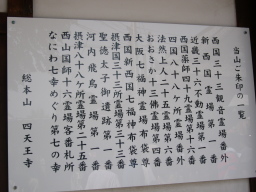 当山ご朱印の一覧
西国三十三観音霊場番外
新西国霊場第一番
近畿三十六不動尊第一番
西国薬師四十九霊場第十六番
四国八十八ケ所霊場番外
法然上人二十五霊場第六番
おおさか十三仏霊場第四番
大阪七福神霊場布袋尊
西国新西国七福神布袋尊
聖徳太子御遺跡第一番
河内飛鳥霊場第一番
摂津国三十三所霊場第三十三番
摂津八十八所霊場第二十五番
西山国師十六霊場客番札所
なにわ七幸めぐり第七の幸
総本山 四天王寺